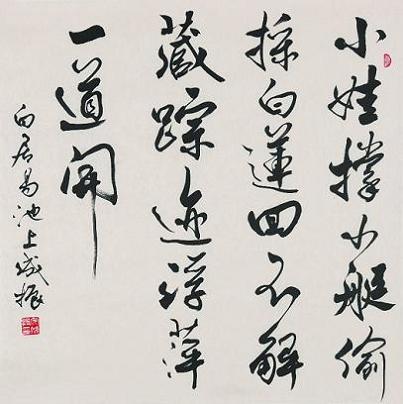 小娃撑小艇偷
採白蓮回不解
藏踪迹浮萍
一道開
白居易池上成振